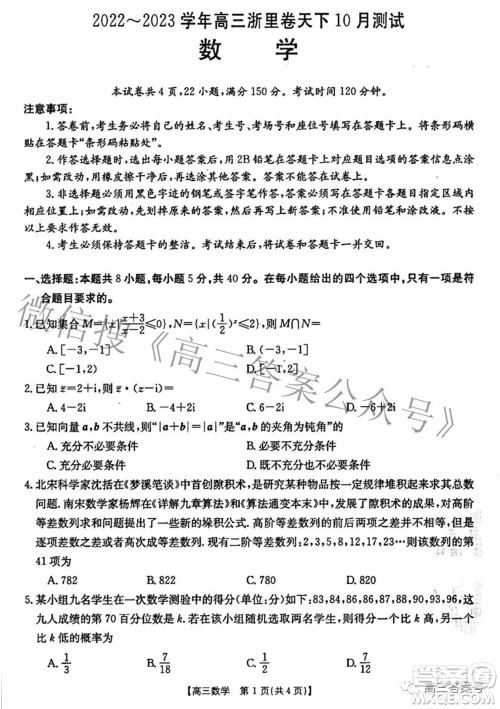 2022～2023学年高三浙里卷天下10月测试
数 学
本试卷共4页,22小题,满分150分。考试时间120分钟。
注意事项:
1.答卷前,考生务必将自己的考场号、座位号、准考证号填写在答题卡上。将条形码横
贴在答题卡“条形码粘贴处”。
2.作答选择题时,选出每小题答案后,用2B铅笔在答题卡上将对应答案选项涂黑。
如需改动,用橡皮擦干净后,再选涂其他答案。答案不能答在试卷上。
3.非选择题必须用黑色字迹的钢笔或签字笔作答,答案必须写在答题卡各题目指定区域内
相应位置上;如需改动,先划掉原来的答案,然后再写上新答案;不准使用铅笔和涂改液。不按以上要求
作答无效。
4.考生必须保持答题卡的整洁。考试结束后,将试卷和答题卡一并交回。
一、选择题:本题共8小题,每小题5分,共40分。在每小题给出的四个选项中,只有一项是符
合题目要求的。
1.已知集合M={x|(x+3)/(x-2)≤0},N={x|(1/2)^x≤2},则M∩N=
A.[-3,-1] B.[-3,-1) C.[-1,2] D.[-1,2)
2.已知z=2+i,则z·(z̄-2+i)=
A.4-2i B.4+2i C.-2i D.-6+2i
3.已知向量a,b不共线,则“a·b<0”是“a,b的夹角为钝角”的
A.充分不必要条件 B.必要不充分条件
C.充要条件 D.既不充分也不必要条件
4.北宋科学家沈括在《梦溪笔谈》中首创隙积术,是研究某种物品按一定规律堆积起来求其总数
问题。南宋数学家杨辉在《详解九章算法》和《算法通变本末》中,发展了隙积术的成果,对高阶
等差数列求和问题提出了一些新的垛积公式。高阶等差数列的前后两项之差并不相等,但是
逐项差数之差或者高次差成等差数列。现有二阶等差数列:2,3,5,8,12,17,23,…则该数列的第
41项为
A.782 B.822 C.780 D.820
5.某小组九名学生在一次数学测验中的得分(单位:分)如下:83,84,86,87,88,90,93,96,这
九人成绩的第70百分位数是k。若在该小组随机选取两名学生,则得分一个比k高,另一个比
k低的概率为
A.1/3 B.7/18 C.4/9 D.7/12
【高三数学 第1页(共4页)】
微信搜《高三答案公众号》
高三答案号